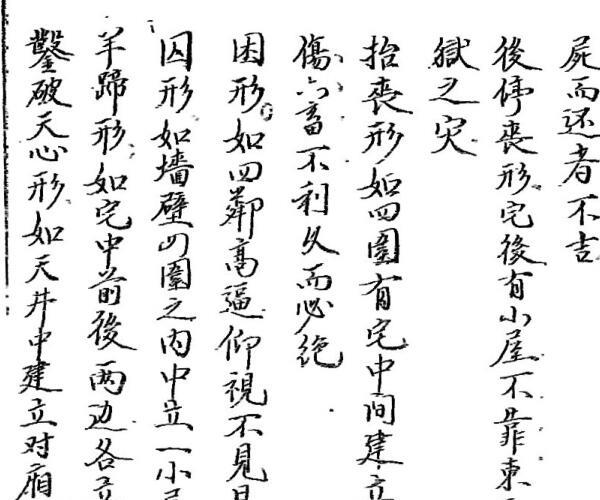 屍而还者不吉
後停喪形宅後有小屋不靠東
獄之灾
抬喪形如四圍有宅中间建立
傷六畜不利久而必绝
困形如四鄰高逼仰視不見
囚形如墙壁四圍之内中立一小
羊蹄形如宅中前後两边各立
鑿破天心形如天井中建立对廂